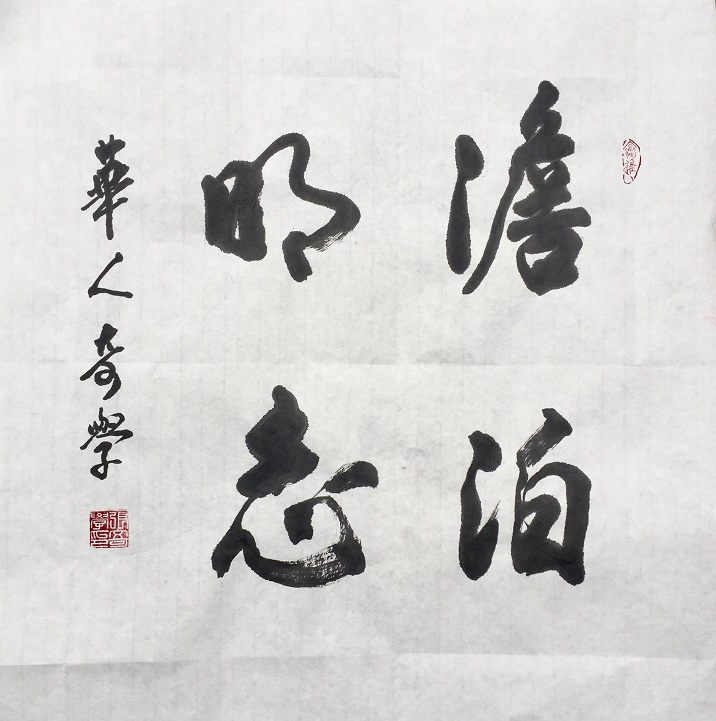 澹泊
明志
華人奇學